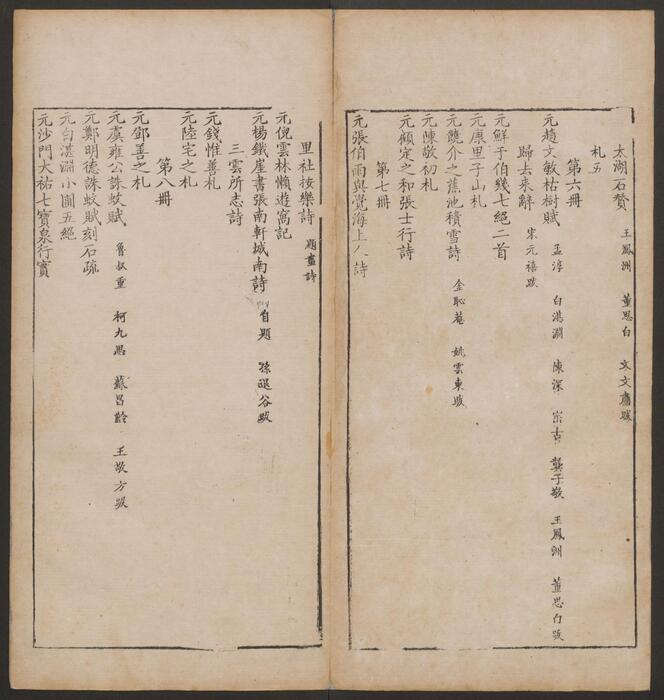 太湖石贊 王鳳洲 董思白 文文肅跋
札五
第六冊
元趙文敏枯樹賦 孟淳 白湛淵 陳深 宗古 龔子敬 王鳳洲 董思白跋
歸去來辭 宋元禧跋
元鮮于伯幾七絕二首
元康里子山札
元饒介之蕉池積雪詩 金恥菴 姚雲東跋
元陳敬初札
元顧定之和張士行詩
第七冊
元張伯雨與覺海上人詩
里社按樂詩 題畫詩
元倪雲林懶遊窩記
元楊鐵崖書張南軒城南詩 自題 孫退谷跋
三雲所志詩
元錢惟善札
元陸宅之札
第八冊
元鄧善之札
元虞雍公誅蚊賦 魯叔重 柯九思 蘇昌齡 王敬方跋
元鄭明德誅蚊賦刻石疏
元白湛淵小圃五絕
元沙門大祐七寶泉行實